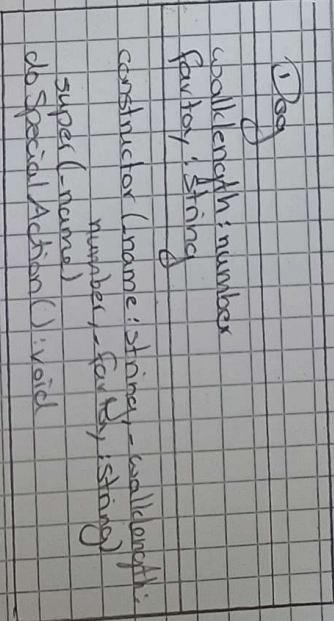 Dog
walklength : number
favtoy : string
constructor (_name : string, _walklength :
number, _favtoy : string)
super (_name)
doSpecialAction () : void